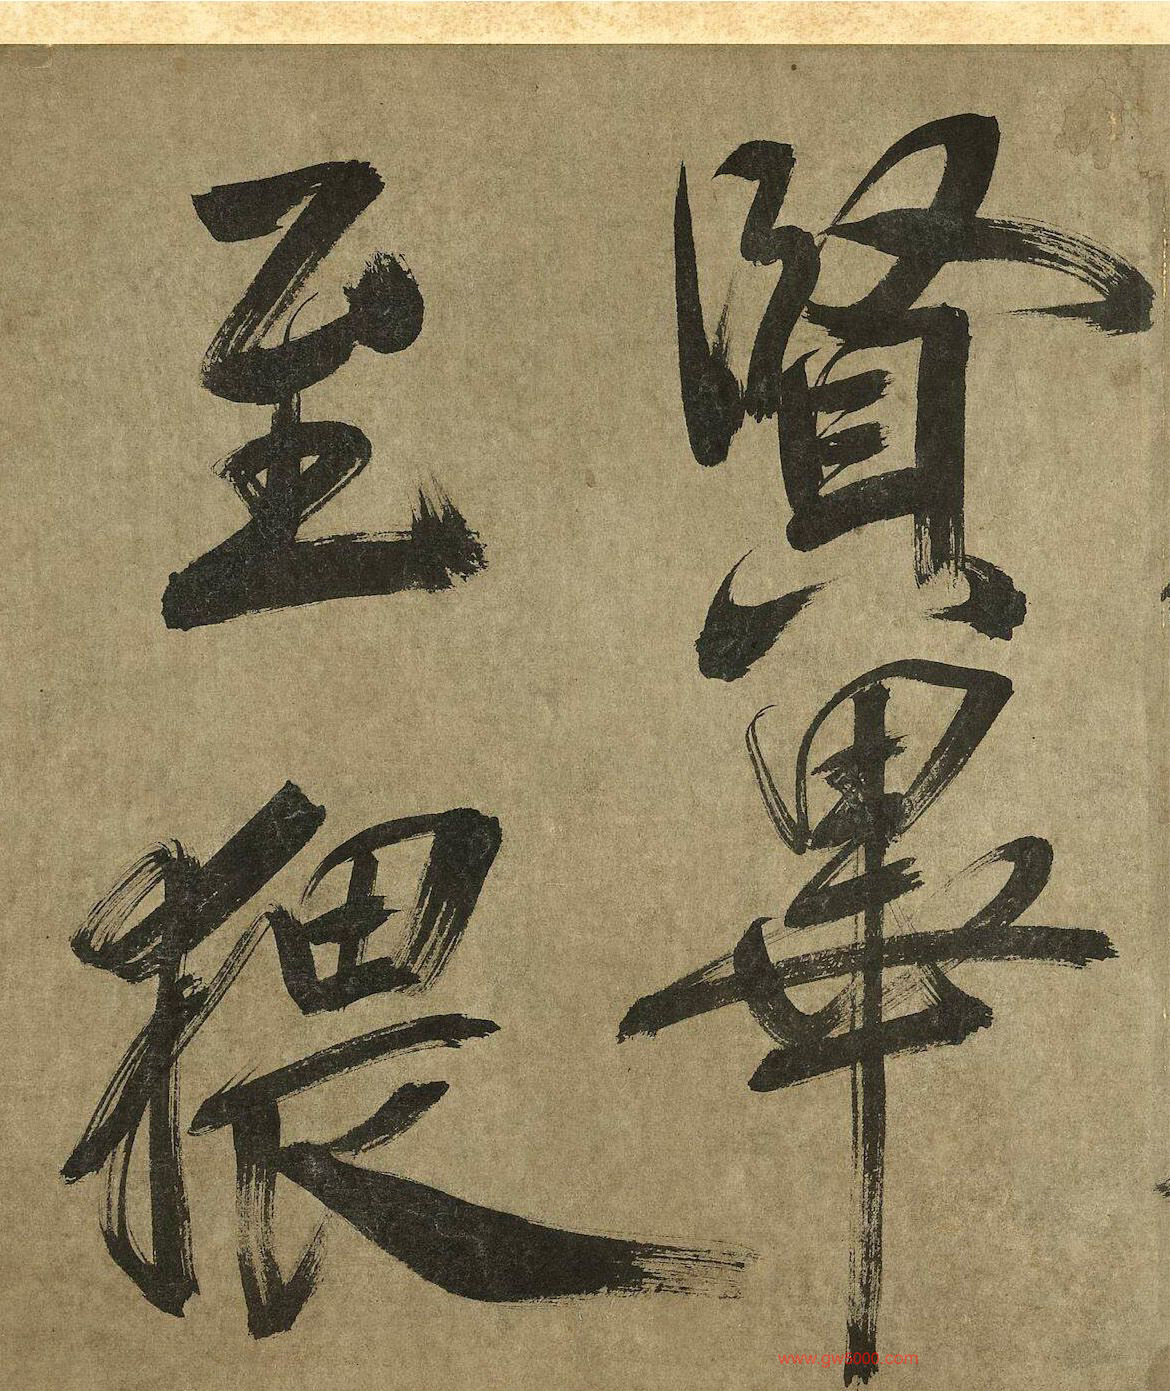 賢畢
至猥
www.gw5000.com